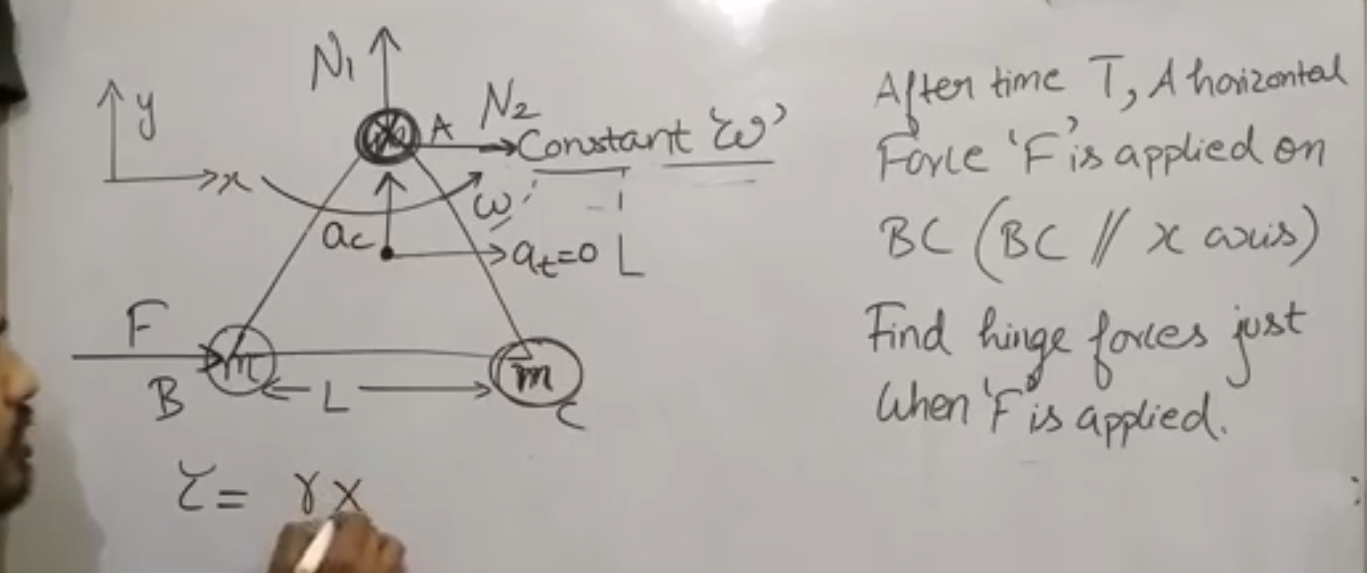 N₁
y
A
N₂
Constant 'ω'
x
ω
a꜀
aₜ=0
L
F
m
m
B
L
C
τ = r×
After time T, A horizontal
Force 'F' is applied on
BC (BC // x axis)
Find hinge forces just
When 'F' is applied.